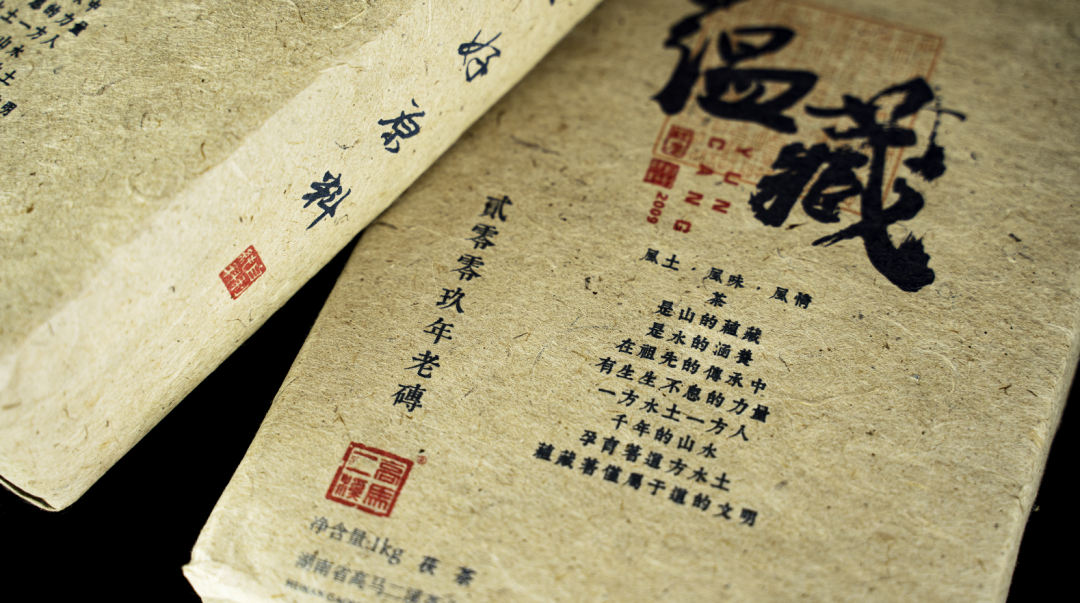 中
的力量
土一方人
山水
土
明
好原料
蘊藏
YUN
CANG
2009
貳零零玖年老磚
風土·風味·風情
茶
是山的蘊藏
是水的涵養
在祖先的傳承中
有生生不息的力量
一方水土一方人
千年的山水
孕育著這方水土
蘊藏著僅屬于這的文明
高馬二溪
净含量:1kg 茯茶
湖南省高马二溪茶